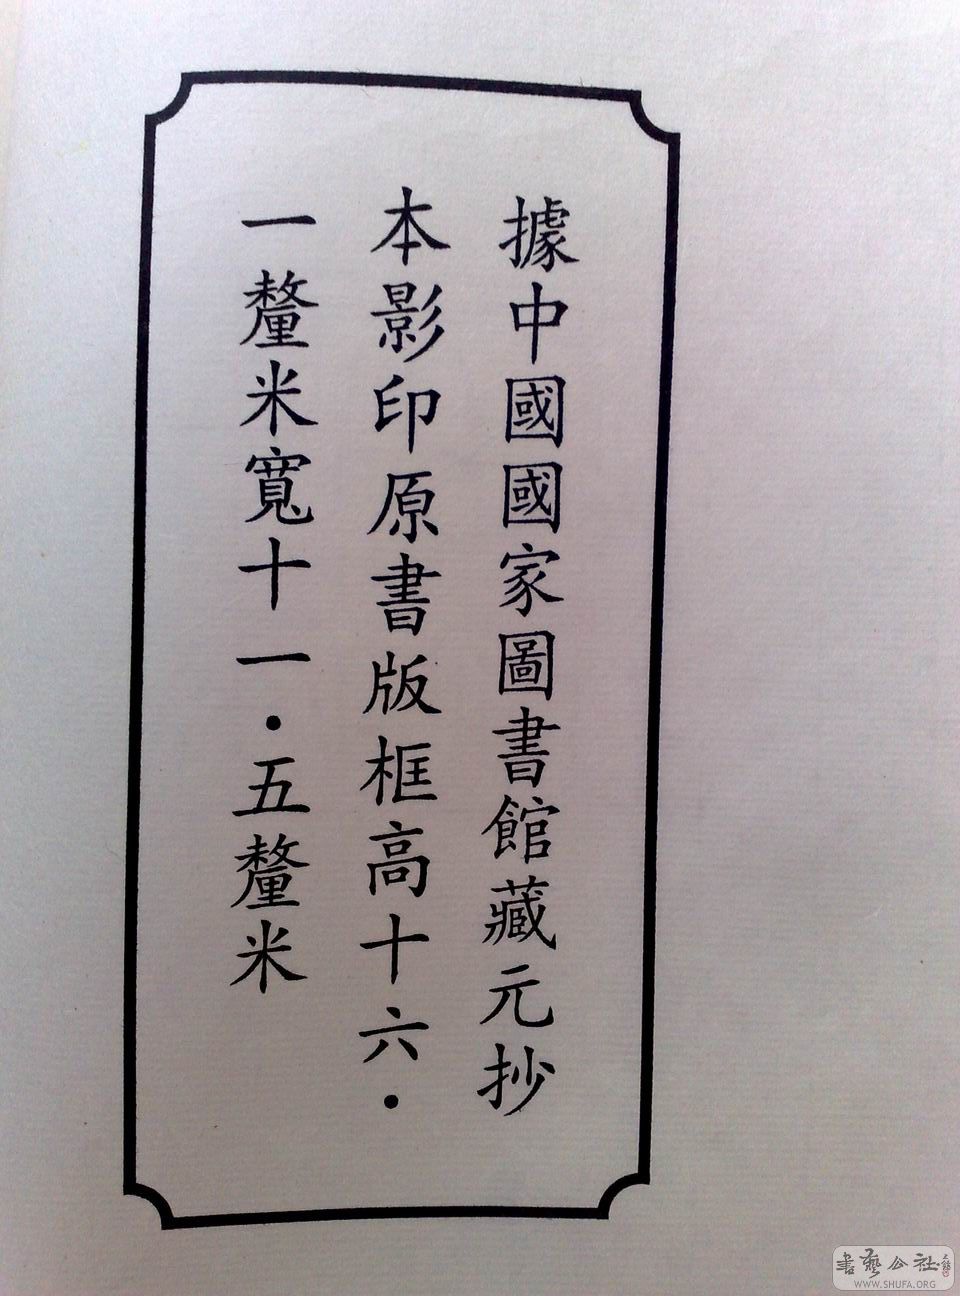 據中國國家圖書館藏元抄
本影印原書版框高十六·
一釐米寬十一·五釐米
書藝公社
WWW.SHUFA.ORG